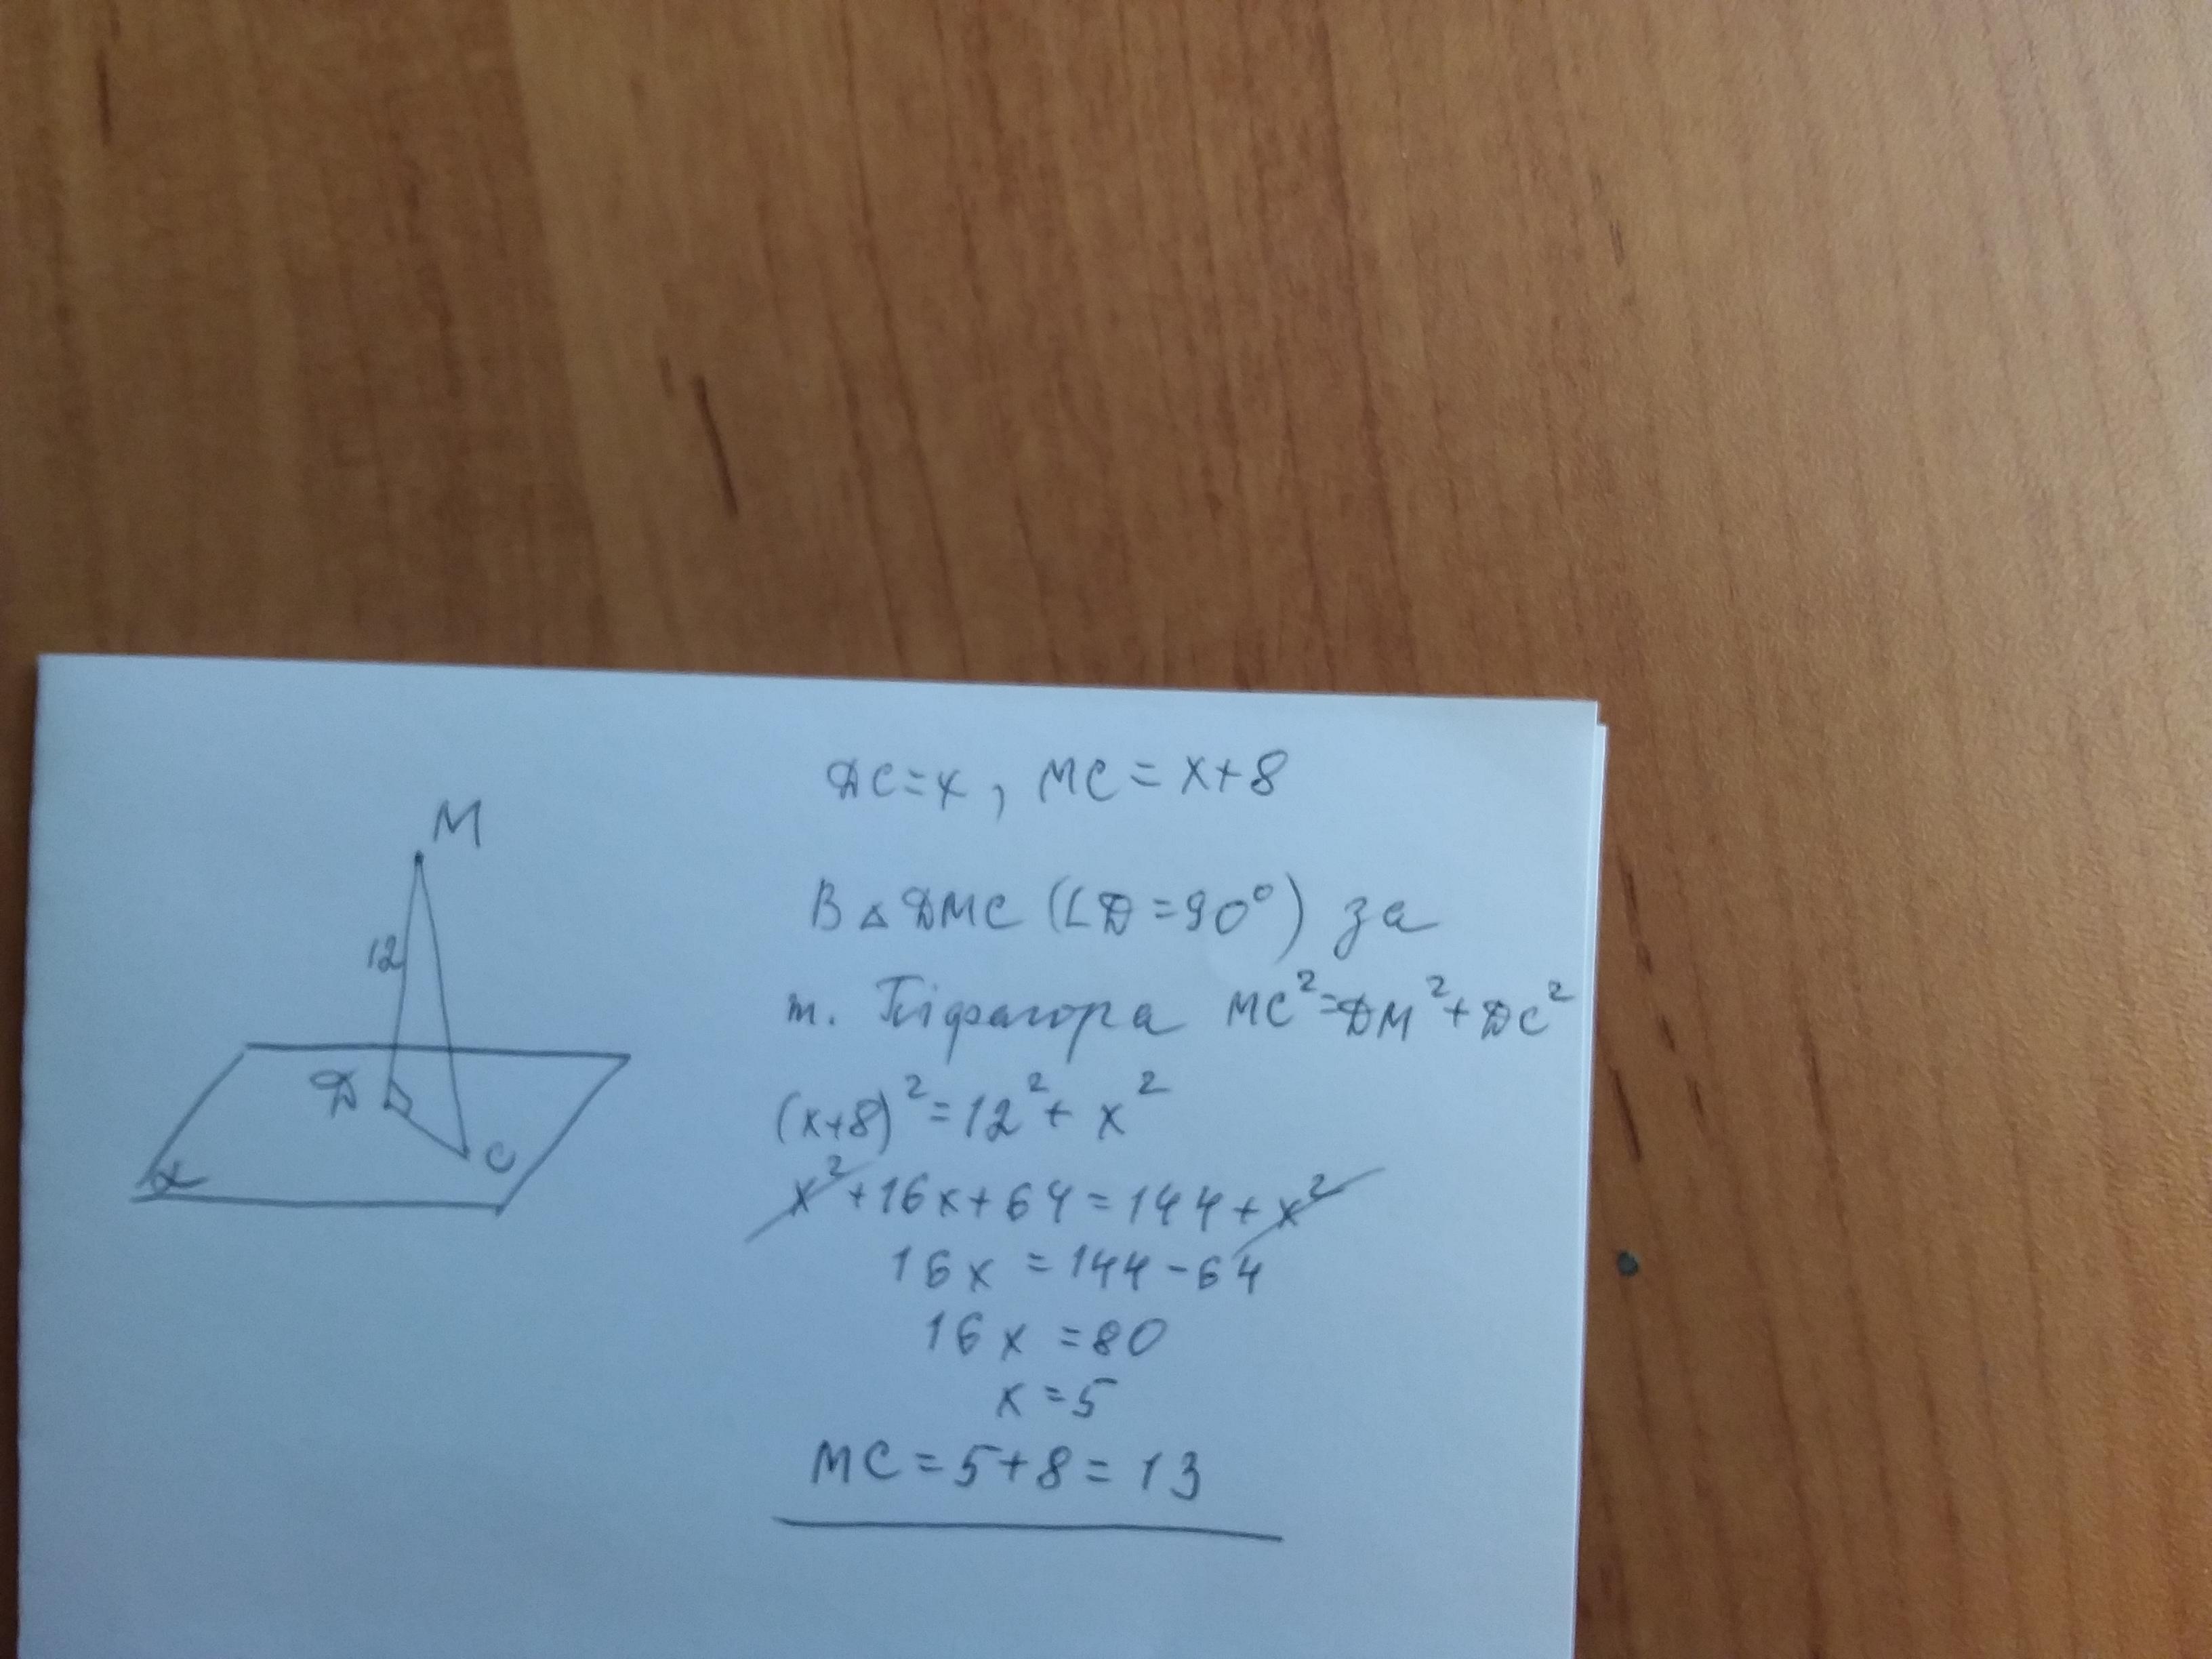 M
12
D
C
α
DC=x, MC=x+8
В △DMC (∠D=90°) за
т. Піфагора MC²=DM²+DC²
(x+8)²=12²+x²
x²+16x+64=144+x²
16x=144-64
16x=80
x=5
MC=5+8=13